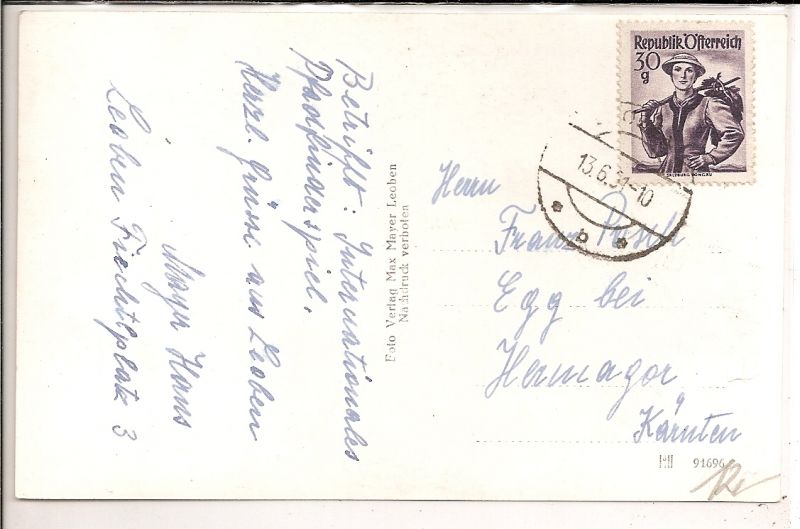 Betrifft: Internationales
Pfadfinderspiel.
Herzl. Grüsse aus Leoben
Mayr Hans
Leoben Fichtlplatz 3
Foto Verlag Max Mayer Leoben
Nachdruck verboten
Republik Österreich
30
g
SALZBURG PONGAU
13.6.51-10
* b *
Herrn
Franz Posch
Egg bei
Hermagor
Kärnten
91696